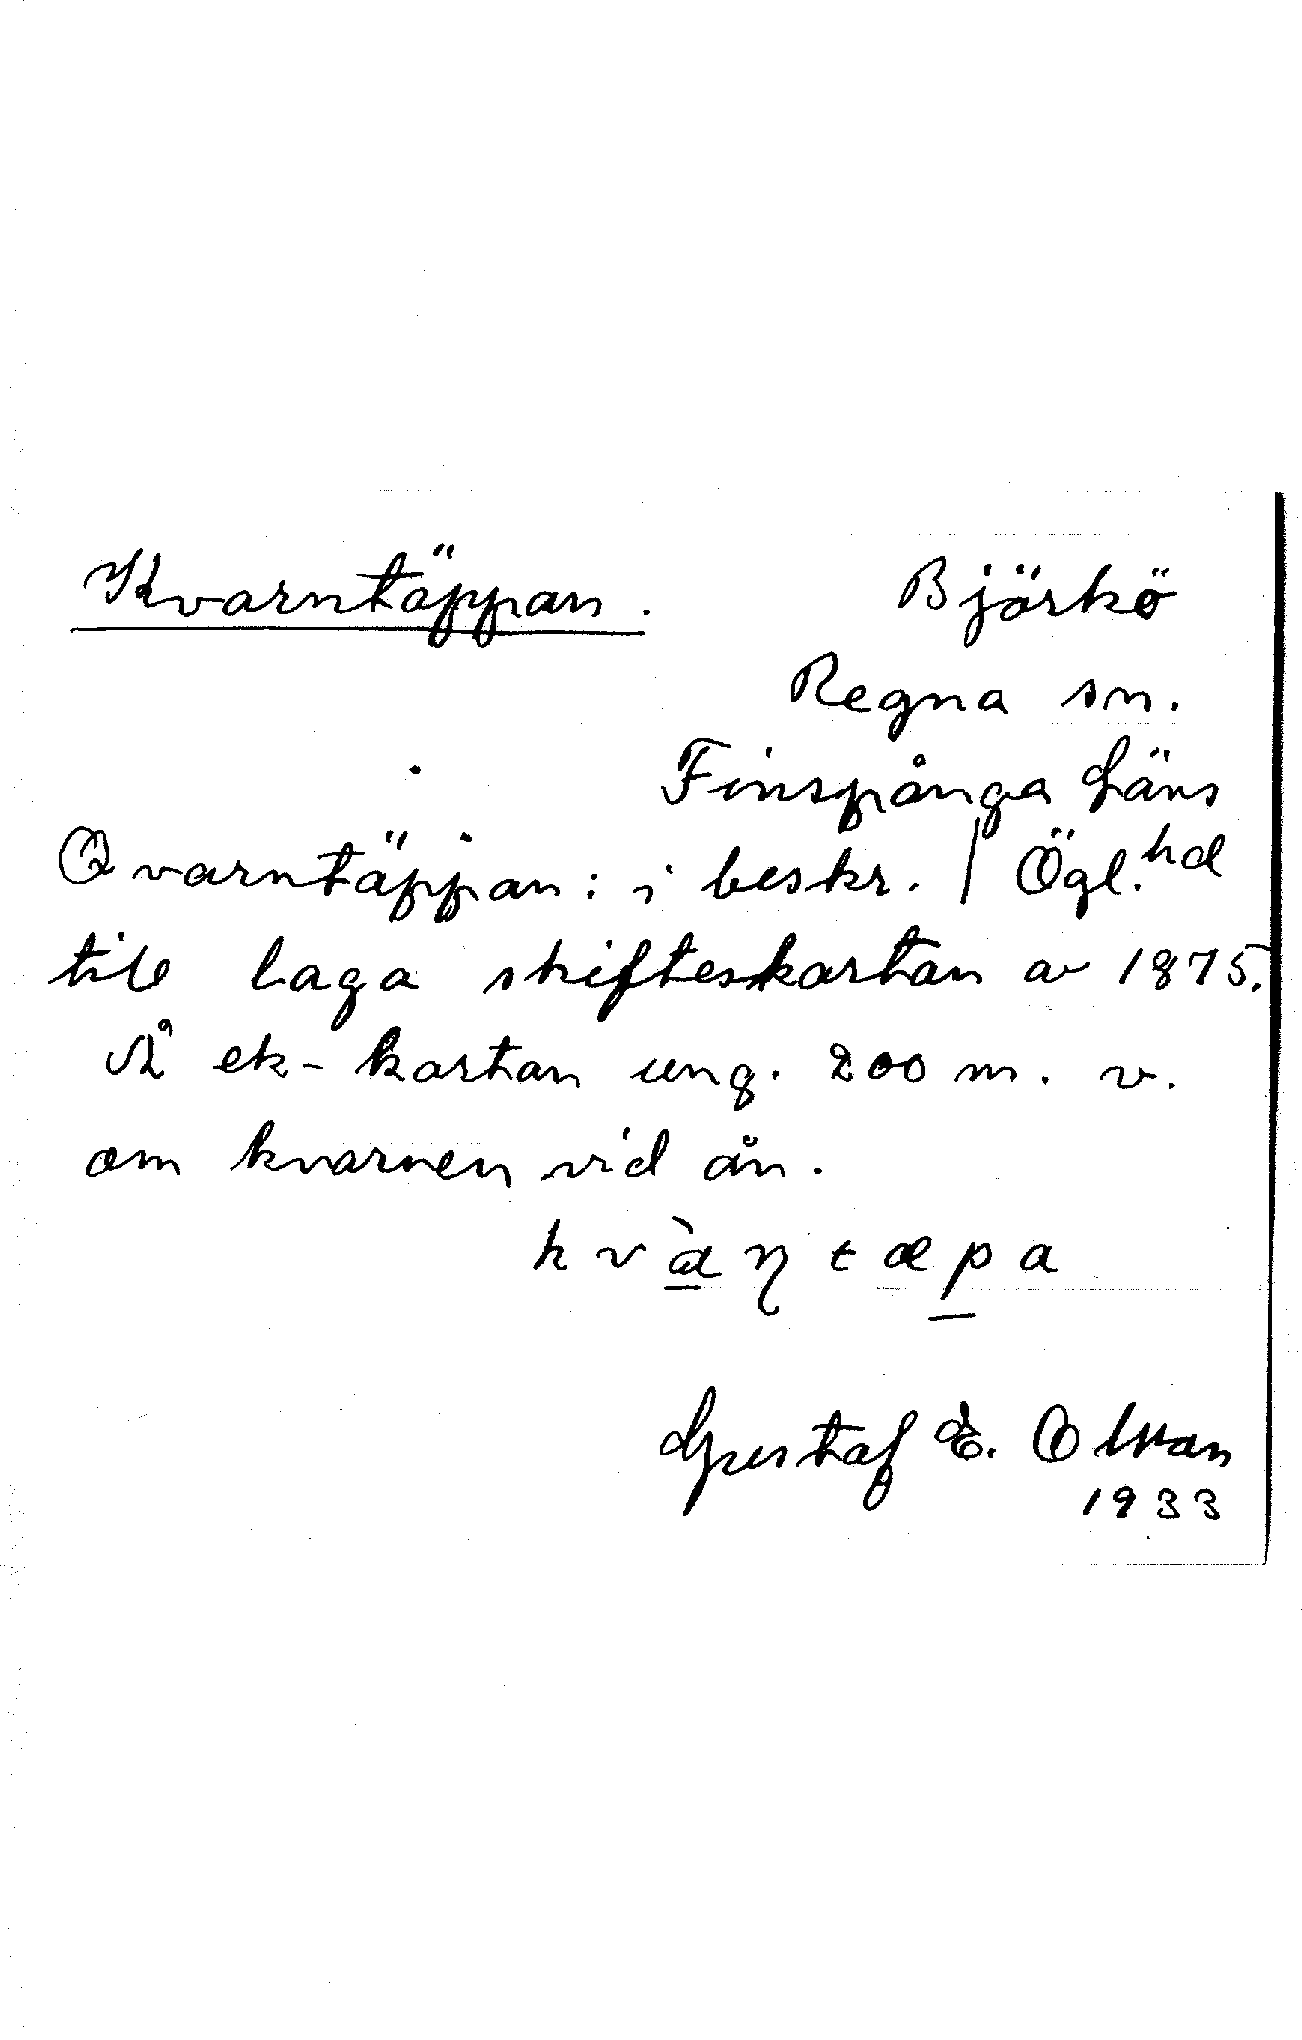 Kvarntäppan. Björkö
Regna sn.
Finspånga Läns
Qvarntäppan: i beskr. | Ögl. hd
till laga skifteskartan av 1875.
Å ek-kartan ung. 200 m. v.
om kvarnen vid ån.
kvàɳtæpa
Gustaf E. Olsson
1933